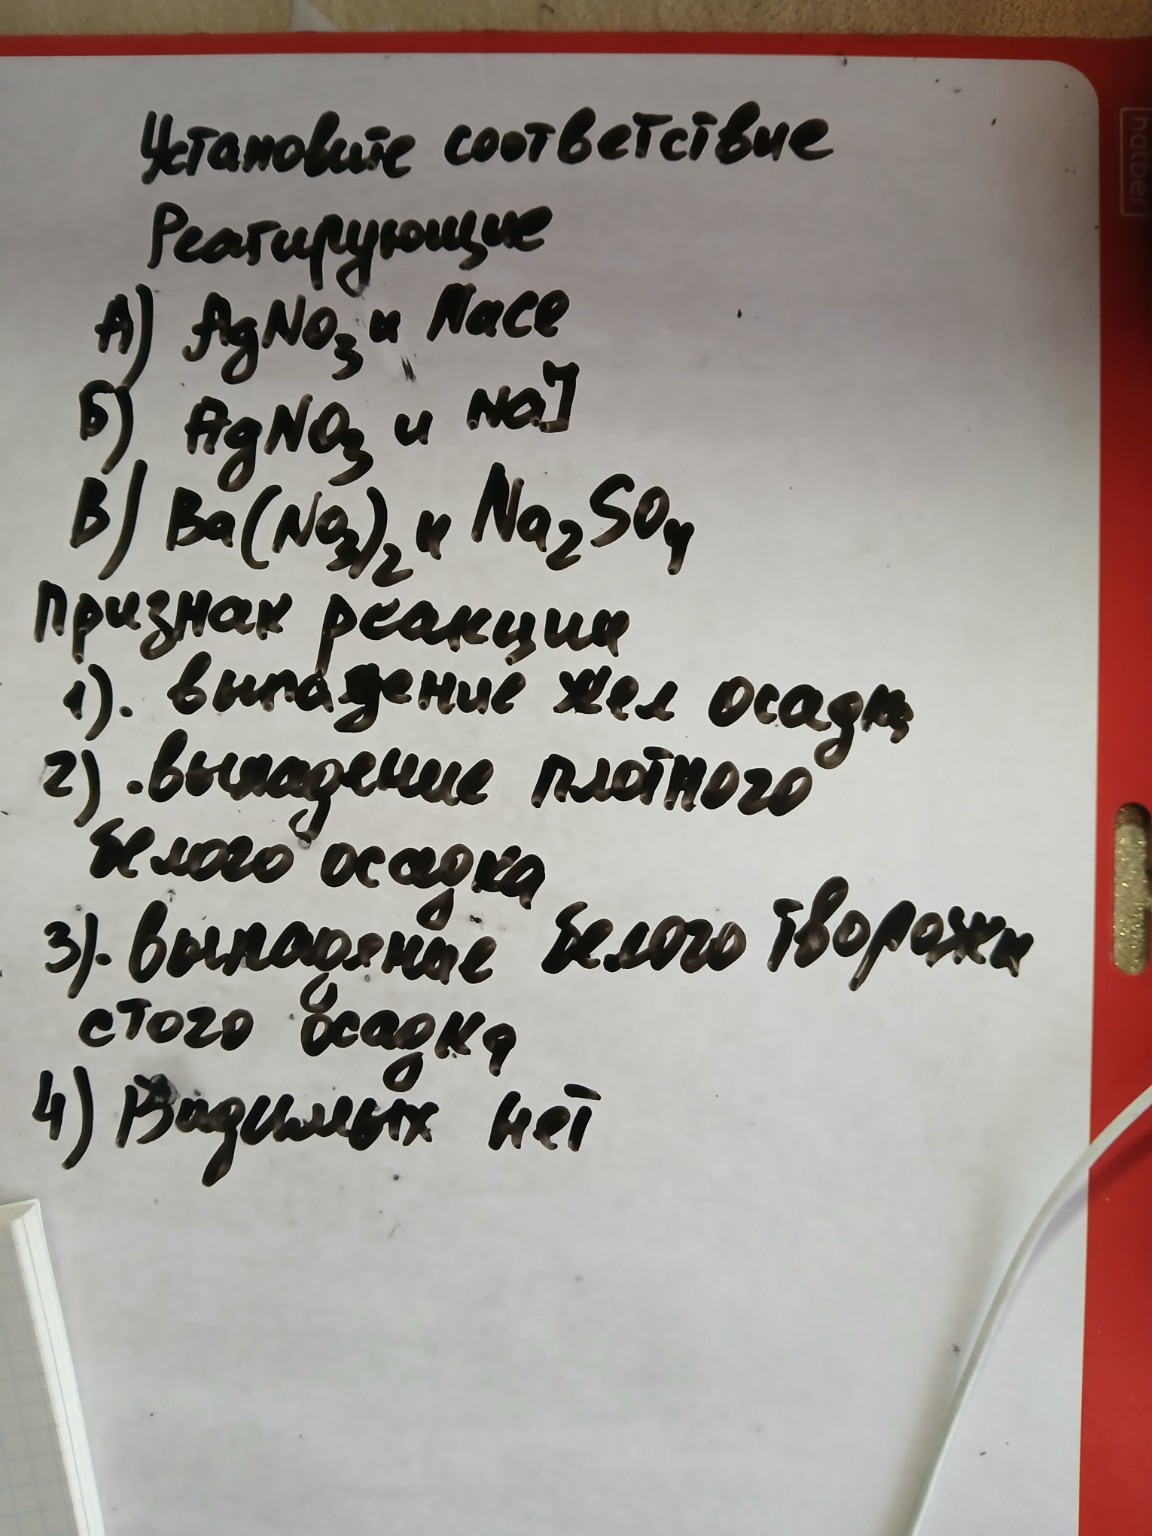 Установите соответствие
Реагирующие
А) AgNO3 и NaCl
Б) AgNO3 и NaJ
В) Ba(NO3)2 и Na2SO4
Признак реакции
1). выпадение жел осадка
2). выпадение плотного
белого осадка
3). выпадение белого творожи
стого осадка
4) Видимых нет
hatber